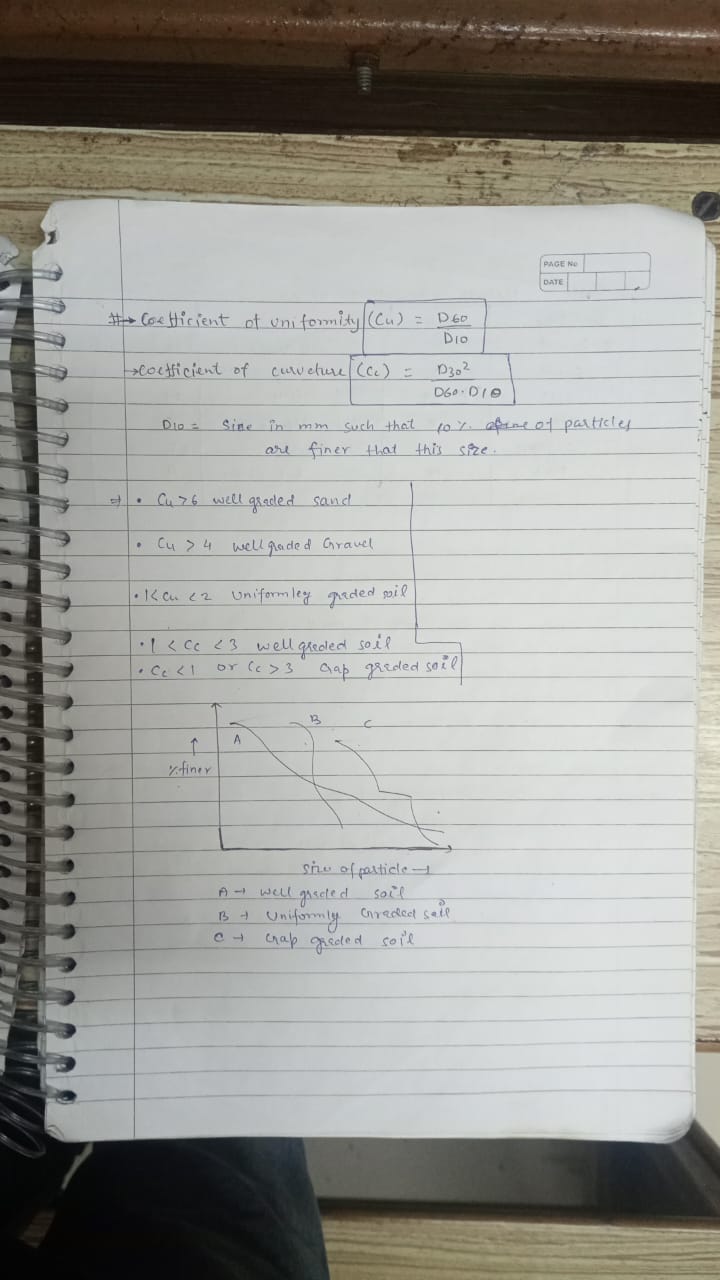 PAGE No
DATE
→ Coefficient of uniformity (Cu) = D60 / D10
→ coefficient of curveture (Cc) = D30² / D60·D10
D10 = Sine in mm such that 10 % of particles
are finer that this size.
⇒ • Cu >6 well graded sand
• Cu > 4 well graded Gravel
• 1< Cu <2 Uniformley graded soil
• 1 < Cc <3 well graded soil
• Cc <1 or Cc >3 Gap graded soil
B C
A
↑
% finer
size of particle →
A → well graded soil
B → Uniformly Graded soil
C → Gap graded soil